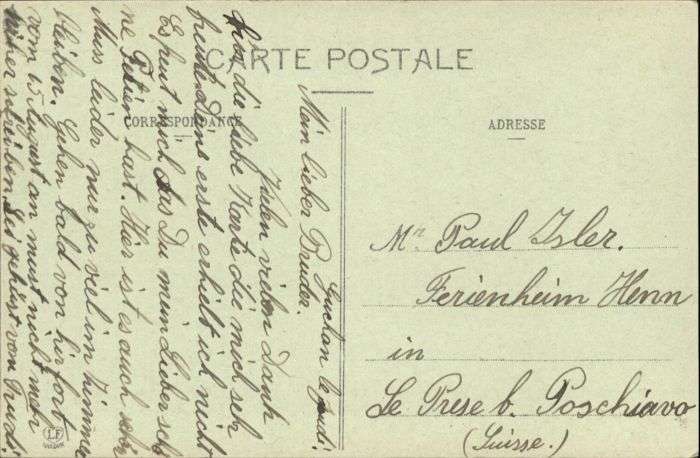 CARTE POSTALE
CORRESPONDANCE
ADRESSE
Luchon le Juli.
Mein lieber Bruder.
Vielen vielen Dank
für die liebe Karte die mich sehr
freute. Deine erste erhielt ich nicht
Es freut mich das Du mein Lieber schö
ne Ferien hast. Hier ist es auch schön
Muss leider nur zu viel im Zimmer
bleiben. Gehen bald von hier fort
vom 15 August an musst nicht mer
hieher schreiben. Sei geküsst von Trudi.
Mr. Paul Isler.
Ferienheim Henn
in
Le Prese b. Poschiavo
(Suisse.)
LF